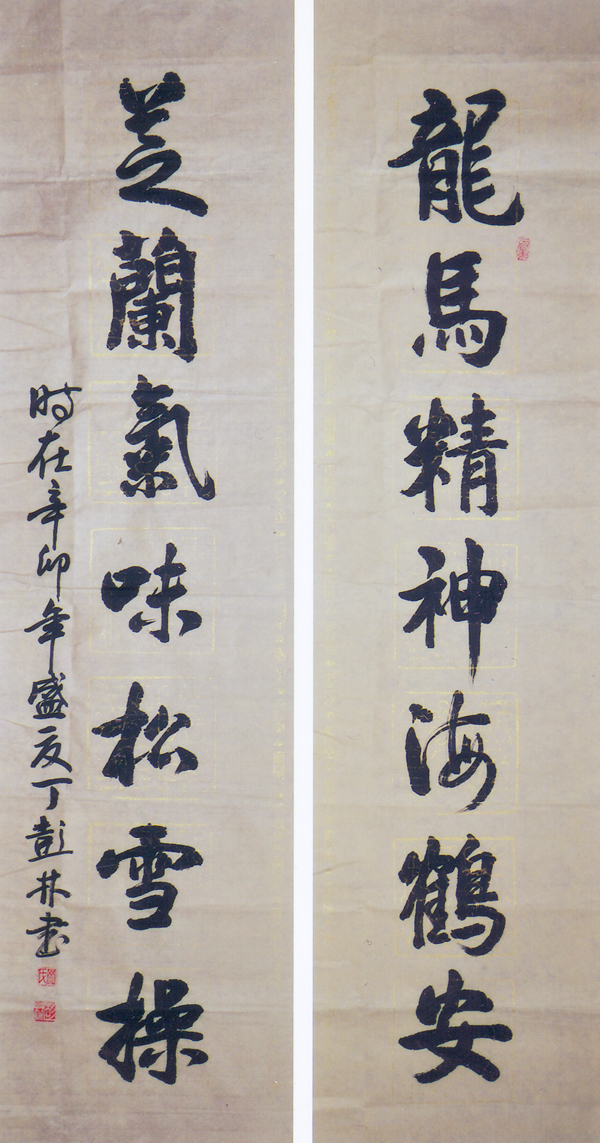 龍馬精神海鶴安
芝蘭氣味松雪操
時在辛卯年盛夏丁彭林書